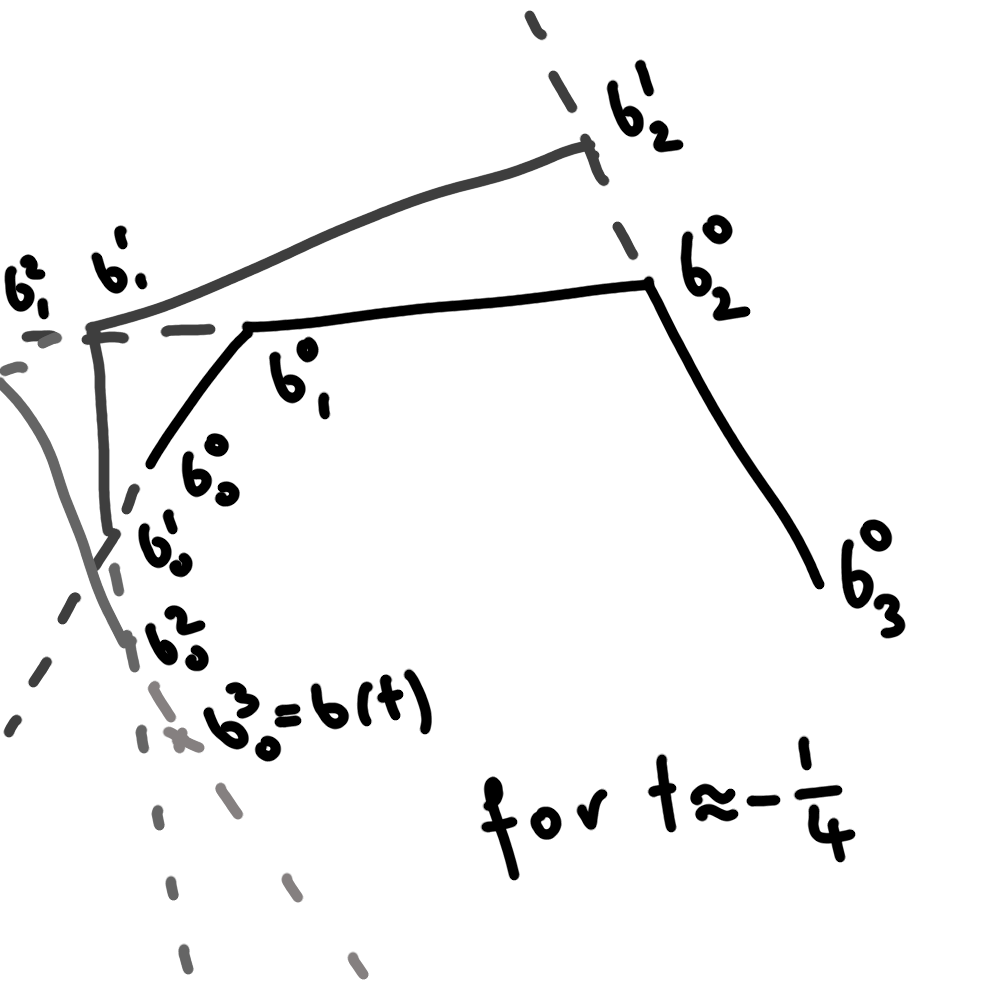 b₂¹
b₁² b₁¹
b₂⁰
b₁⁰
b₀⁰
b₀¹
b₃⁰
b₀²
b₀³ = b(t)
for t ≈ - 1/4